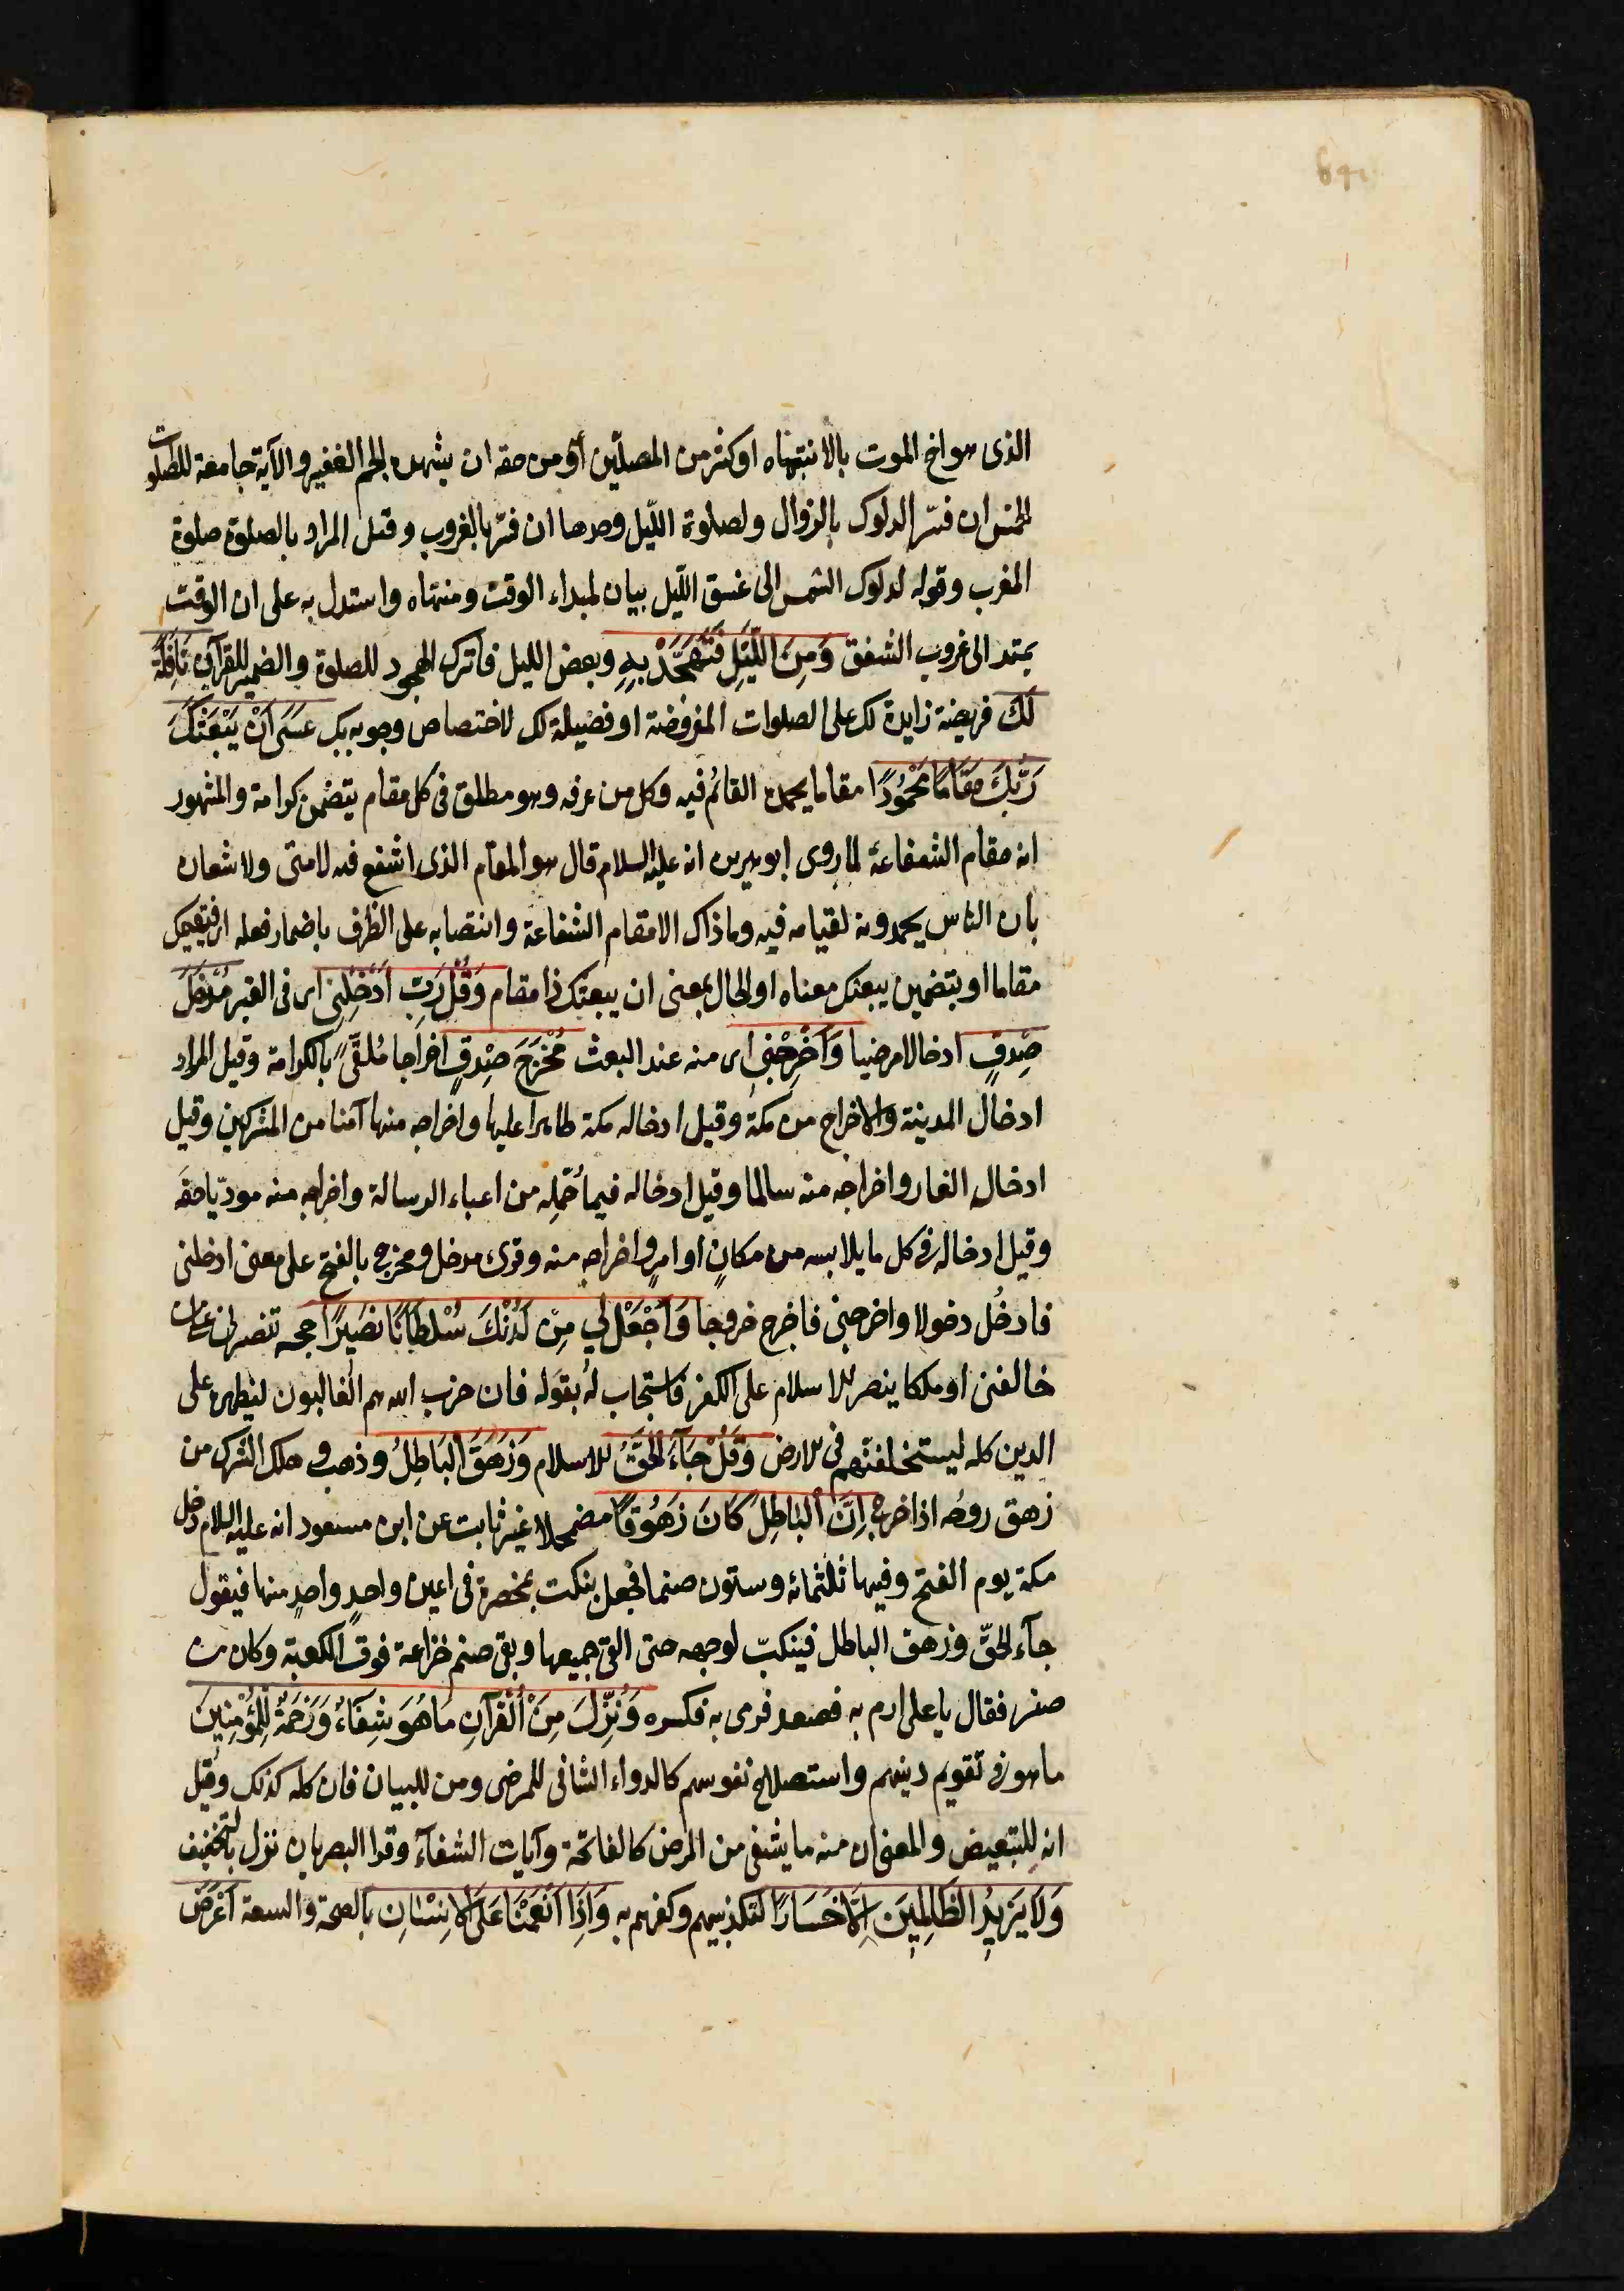 الذى هو اخ الموت بالانتباه او كثير من المصلّين أو من حقه ان يشهده الجم الغفير والآية جامعة للصلوات
الخمس ان فسّر الدلوك بالزوال ولصلوة اللّيل وحدها ان فسّر بالغروب وقيل المراد بالصلوة صلوة
المغرب وقوله لدلوك الشمس الى غسق اللّيل بيان لمبداء الوقت ومنتهاه واستدل به على ان الوقت
يمتد الى غروب الشفق وَمِنَ اللَّيْلِ فَتَهَجَّدْ بِهِ وبعض الليل فاترك الهجود للصلوة والضمير للقرآن نَافِلَةً
لَكَ فريضة زايدة لك على الصلوات المفروضة او فضيلة لك لاختصاص وجوبه بك عَسَى اَنْ يَبْعَثَكَ
رَبُّكَ مَقَامًا مَحْمُودًا مقاما يحمده القائم فيه وكل من عرفه وهو مطلق فى كل مقام يتضمن كرامة والمشهور
انه مقام الشفاعة لما روى ابو هريره انه عليه السلام قال هو المقام الذى اشفع فيه لامتى ولاشعاره
بان الناس يحمدونه لقيامه فيه وما ذاك الا مقام الشفاعة وانتصابه على الظرف باضمار فعله اى فيقيمك
مقاما او بتضمين يبعثك معناه او الحال بمعنى ان يبعثك ذا مقام وَقُلْ رَبِّ اَدْخِلْنِى اى فى القبر مُدْخَلَ
صِدْقٍ ادخالا مرضيا وَاَخْرِجْنِى اى منه عند البعث مُخْرَجَ صِدْقٍ اخراجا مُلقًّى بالكرامة وقيل المراد
ادخال المدينة والاخراج من مكة وقيل ادخاله مكة ظاهرا عليها واخراجه منها آمنا من المشركين وقيل
ادخال الغار واخراجه منه سالما وقيل ادخاله فيما حُمّله من اعباء الرسالة واخراجه منه مودّيا حقه
وقيل ادخاله فى كل ما يلابسه من مكانٍ او امرٍ واخراجه منه وقرئ مدخل ومخرج بالفتح على معنى ادخلنى
فادخُل دخولا واخرجنى فاخرج خروجا وَاجْعَلْ لِي مِنْ لَدُنْكَ سُلْطَانًا نَصِيرًا حجة تنصرنى على من
خالفنى او ملكا ينصر الاسلام على الكفر فاستجاب له بقوله فان حزب الله هم الغالبون ليظهره على
الدين كله ليستخلفنّهم فى الارض وَقُلْ جَآءَ الْحَقُّ الاسلام وَزَهَقَ الْبَاطِلُ وذهب وهلك الشرك من
زهق روحُه اذا خرج اِنَّ الْبَاطِلَ كَانَ زَهُوقًا مضمحلا غير ثابت عن ابن مسعود انه عليه السلام دخل
مكة يوم الفتح وفيها ثلثمائة وستون صنما فجعل ينكت بمخصرة فى اعين واحدٍ واحدٍ منها فيقول
جآء الحقّ وزهق الباطل فينكبّ لوجهه حتى القى جميعها وبقى صنم خزاعة فوق الكعبة وكان من
صفر فقال يا على ارم به فصعد فرمى به فكسره وَنُنَزِّلُ مِنَ الْقُرْآنِ مَا هُوَ شِفَآءٌ وَرَحْمَةٌ لِلْمُؤْمِنِينَ
ما هو فى تقويم دينهم واستصلاح نفوسهم كالدواء الشافى للمرضى ومن للبيان فان كله كذلك وقيل
انه للتبعيض والمعنى ان منه ما يشفى من المرض كالفاتحة وآيات الشفآء وقرا البصريان ننزل بالتخفيف
وَلَا يَزِيدُ الظَّالِمِينَ اِلَّا خَسَارًا لتكذيبهم وكفرهم به وَاِذَا اَنْعَمْنَا عَلَى الْاِنْسَانِ بالصحة والسعة اَعْرَضَ